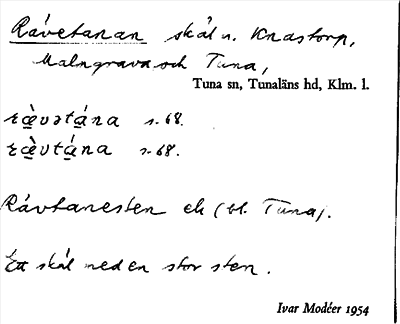 Råvetanan skäl n. Knastorp,
Malmgrava och Tuna,
Tuna sn, Tunaläns hd, Klm. l.
ræ̀vətána s. 68.
ræ̀vtána s. 68.
Råvtanesten ek (bl. Tuna).
Ett skäl med en stor sten.
Ivar Modéer 1954